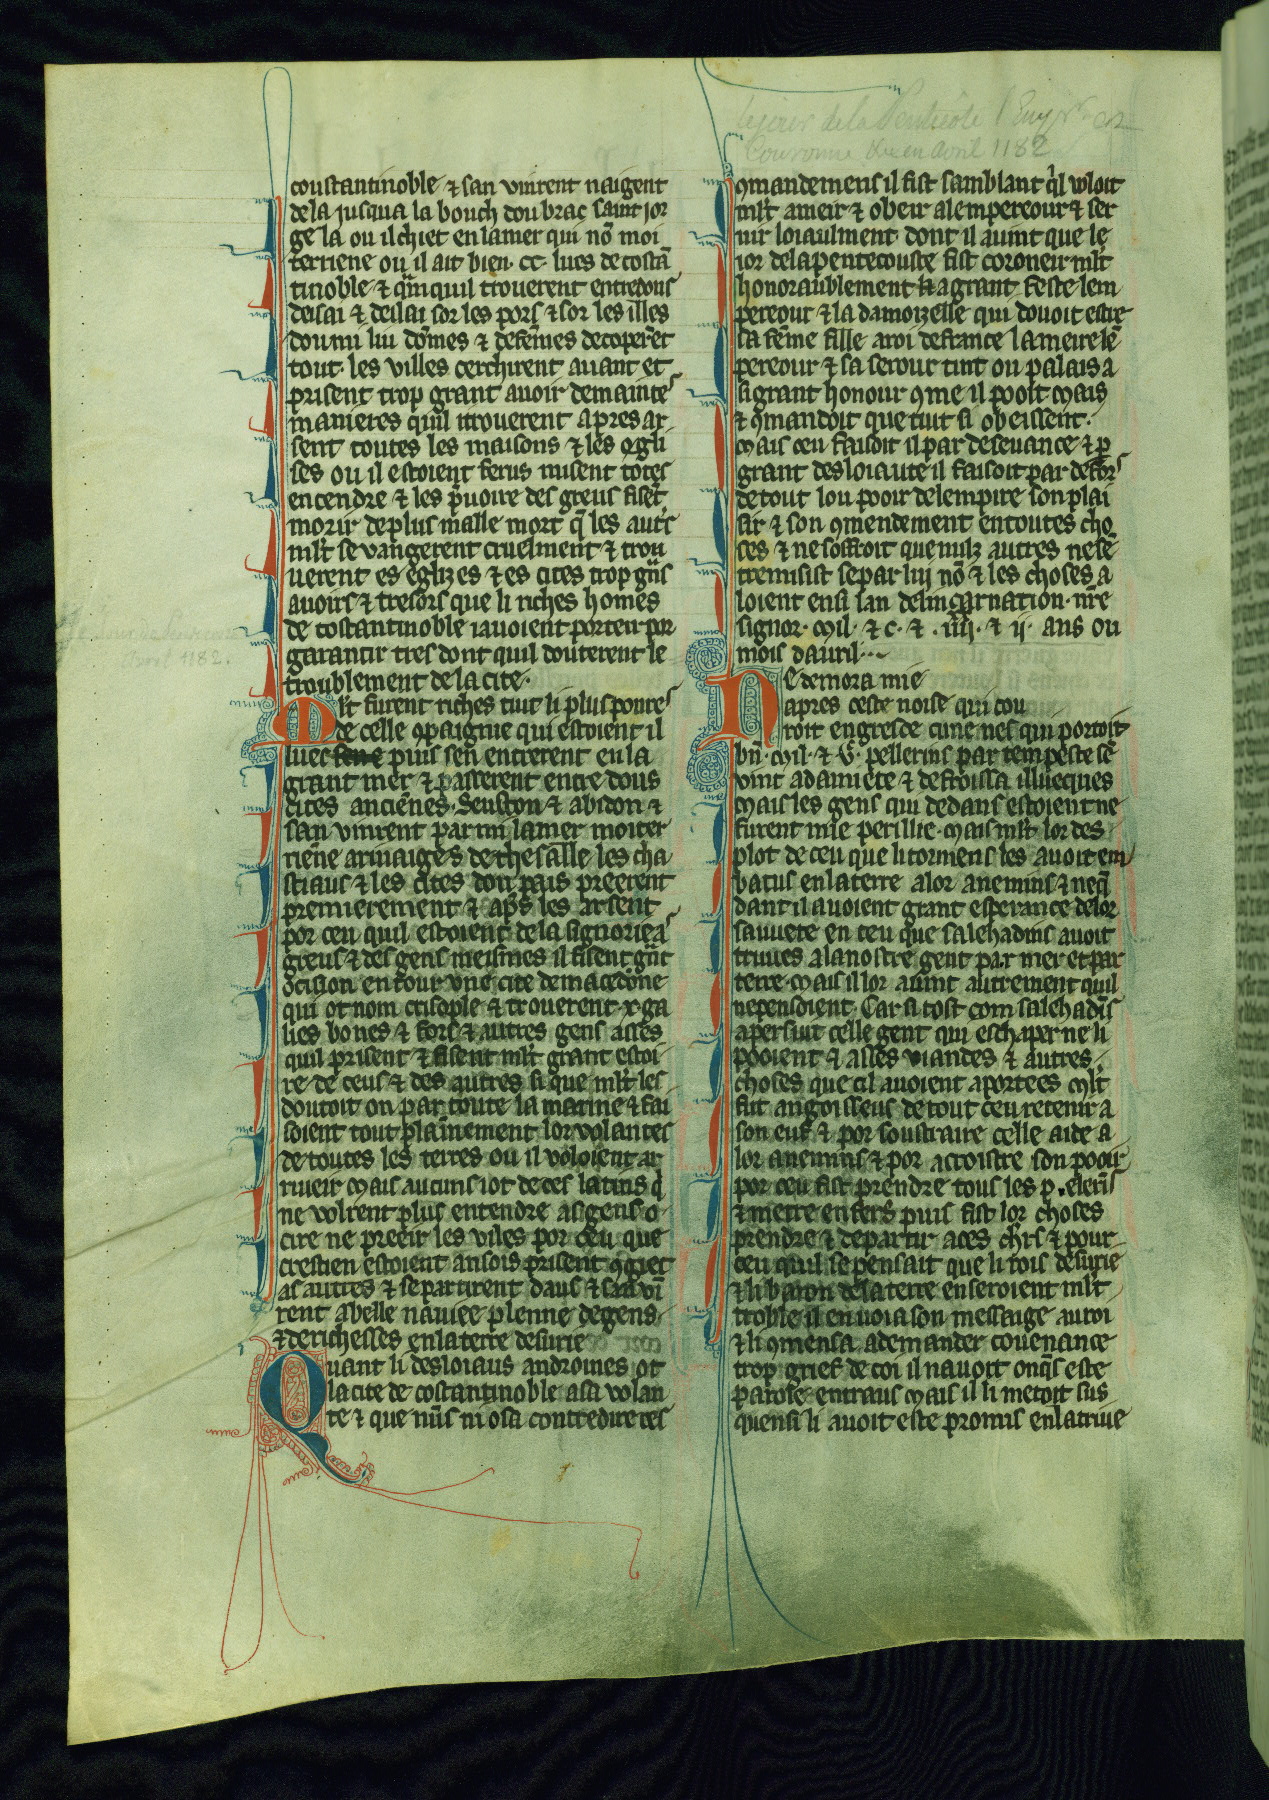 coustantinoble ⁊ san vinrent naigent
dela jusqua la bouch dou brac saint jor
ge la ou il chiet en lamer qui nō moi
terriene ou il ait bien · cc · lues de costā
tinoble · ⁊ q̄m quil trouerent entredous
desai ⁊ deilai sor les pors ⁊ sor les illes
dou mi liu dōmes ⁊ defēmes decoperēt
tout · les villes cerchirent auant et
prisent trop grant auoir demaintes
manieres quil trouerent apres ar
sent toutes les maisons ⁊ les egli
ses ou il estoient ferus misent totes
encendre ⁊ les puoire des greus fisēt
morir deplus malle mort q̄ les autˢ
ml̄t se vangerent cruelment ⁊ trou
uerent es eglizes ⁊ es cites trop gn̄s
auoirs ⁊ tresors que li riches homes
de costantinoble i auoient porteu por
garantir tres dont quil douterent le
troublement de la cite ·
Ml̄t furent riches tuit li plus poures
de celle ꝯpaignie qui estoient il
luec puis sen entrerent en la
grant mer ⁊ passerent entre dous
cites anciēnes · Seuston ⁊ abidon ⁊
san vinrent par mi lamer moiter
riēne arinaiges de thesalle les cha
stiaus ⁊ les cites dou pais preerent
premierement ⁊ ap̄s les arsent
por ceu quil estoient de la signorie as
greus ⁊ des gens meismes il fisent gn̄t
ocision entour vne cite de macedone
qui ot nom crisople ⁊ trouerent · x · ga
lies bones ⁊ fors ⁊ autres gens asses
quil prisent ⁊ fisent ml̄t grant estoi
re de ceus ⁊ des autres si que ml̄t les
doutoit on par toute la marine ⁊ fai
soient tout plainement lor volantes
de toutes les terres ou il voloient ar
riueir mais aucuns i ot de ces latins q̄
ne volrent plus entendre as gens o
cire ne preeir les viles por ceu que
crestien estoient ansois prisent ꝯgiet
as autres ⁊ se partirent daus ⁊ san vī
rent a belle nauiee plenne de gens
⁊ de richesses en la terre de surie
Quant li desloiaus androines ot
la cite de costantinoble a sa volan
te ⁊ que nūs ni osa contredire ces
Le jour de la Pentecôte l'Emp
Couronné en avril 1182
ꝯmandemens il fist samblant q̄l woloit
ml̄t ameir ⁊ obeir a lempereour ⁊ ser
uir loiaulment dont il auint que le
jor de la pentecouste fist coroneir ml̄t
honoraublement ⁊ a grant feste lem
pereour ⁊ la damoizelle qui douoit estre
sa fēme fille au roi de france la meire lē
pereour ⁊ sa serour tint ou palais a
si grant honour ꝯme il pooit mais
⁊ ꝯmandoit que tuit li obeissent ·
mais ceu faisoit il par deseuance ⁊ p̄
grant desloiaute il faisoit par defors
de tout lou pooir de lempire son plai
sir ⁊ son ꝯmendement en toutes cho
ses ⁊ ne soffroit que nulz autres ne sē
tremisist se par lui nō ⁊ les choses a
loient ensi lan de lincarnation · nr̄e
signor · mil · ⁊ c · ⁊ · iiij · ⁊ ij · ans ou
mois dauril ·
Ne demora mie
apres ceste noise qui cou
roit en grece cune nes qui portoit
bn̄ · mil · ⁊ v̊ · pellerins par tempeste sē
vint a damiete ⁊ defroissa illuecques
mais les gens qui dedans estoient ne
furent mie perillie · mais ml̄t lor des
plot de ceu que li tormens les auoit em
batus en la terre a lor anemins ⁊ neq̄
dant il auoient grant esperance de lor
sauuete en ceu que salehadins auoit
truues a la nostre gent par mer et par
terre · mais il lor auint autrement quil
ne pensoient · Car si tost com salehadīs
apersuit celle gent qui eschaper ne li
pooient ⁊ asses viandes ⁊ autres
choses que cil auoient aportees ml̄t
fut angoisseus de tout ceu retenir a
son euf ⁊ por soustraire celle aide a
lor anemins ⁊ por acroistre son pooir
por ceu fist prendre tous les pelerīs
⁊ metre en fers puis fist lor choses
prendre ⁊ departir a ces chr̄s ⁊ pour
ceu quil se pensait que li rois de surie
⁊ li baron de la terre en seroient ml̄t
troble il enuoia son messaige au roi
⁊ li ꝯmensa a demander couenance
trop grief de coi il nauoit onq̄s este
parole entraus mais il li metoit sus
quensi li auoit este promis en la triue
Avril 1182.